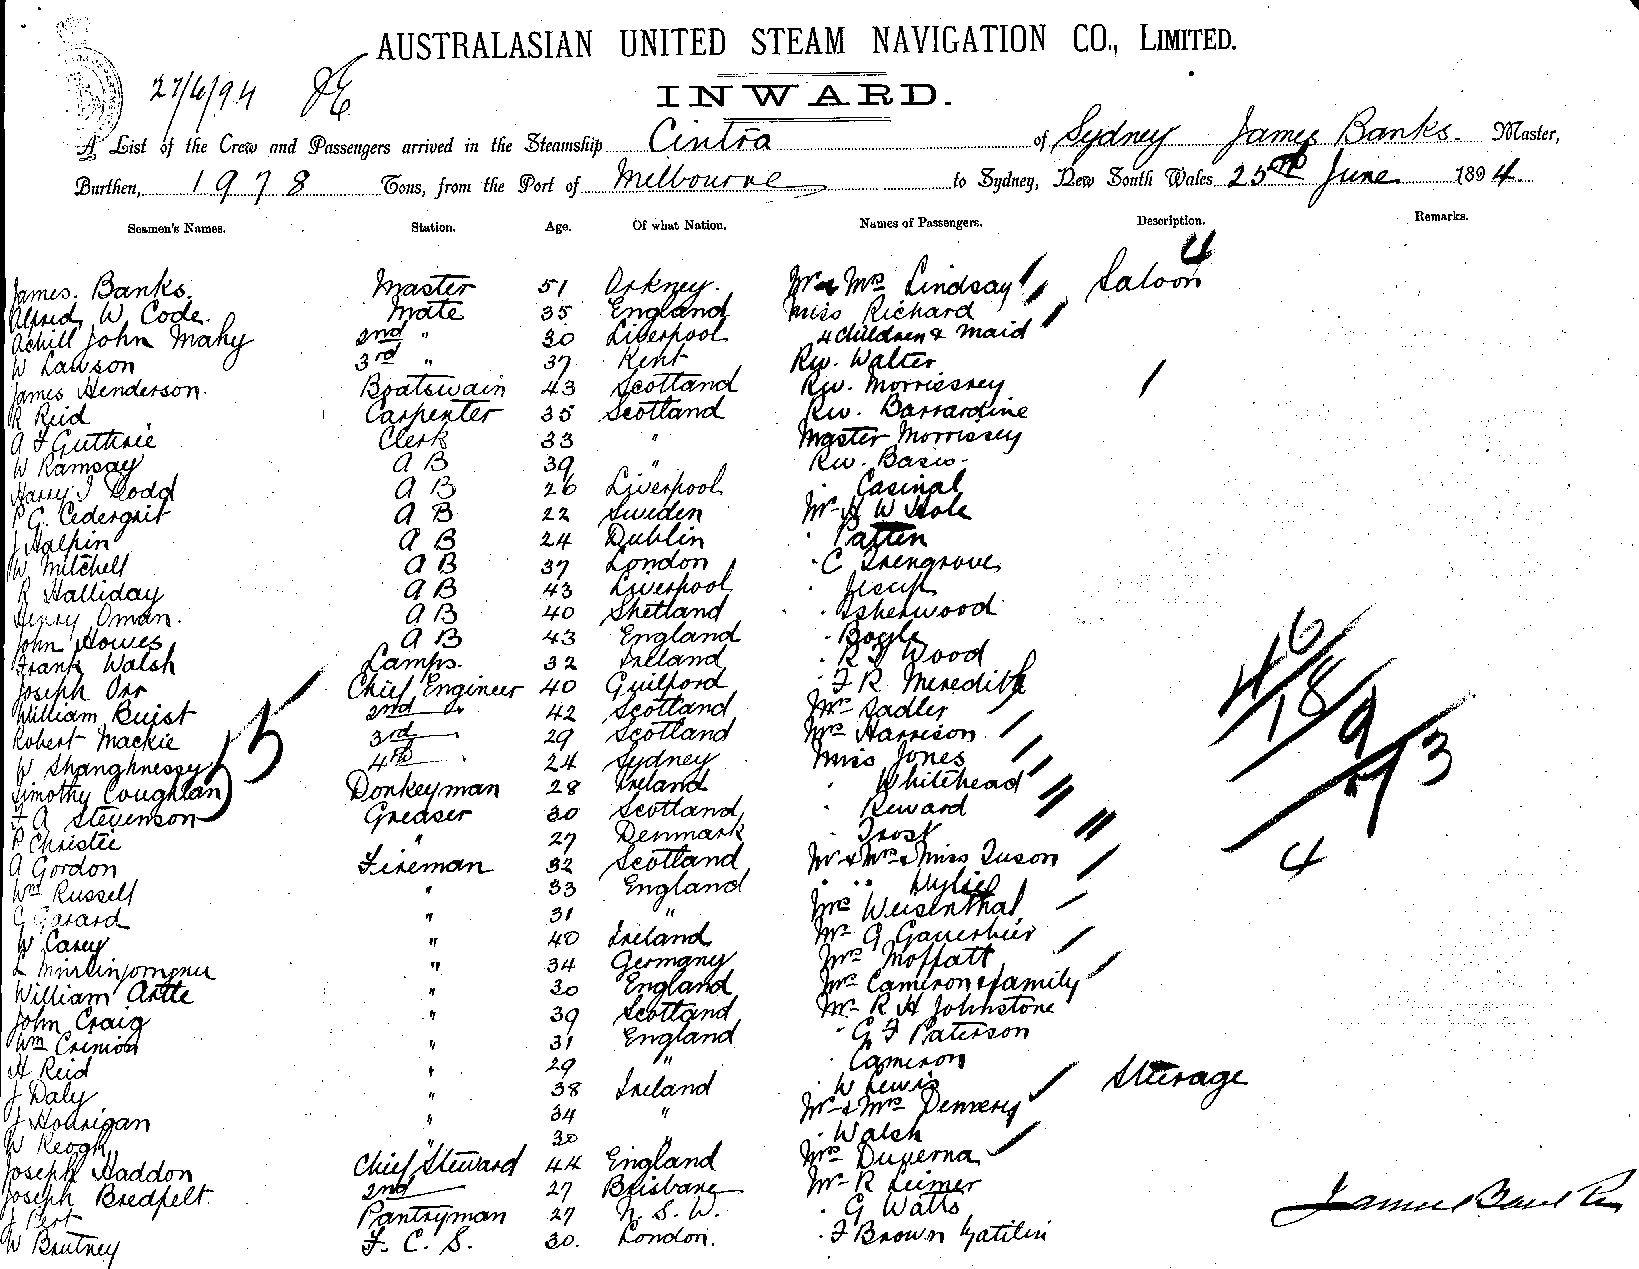 AUSTRALASIAN UNITED STEAM NAVIGATION CO., LIMITED.
27/6/94
INWARD.
A List of the Crew and Passengers arrived in the Steamship Cintra of Sydney James Banks. Master,
Burthen, 1978 Tons, from the Port of Melbourne to Sydney, New South Wales 25th June 1894.
Seamen's Names. Station. Age. Of what Nation. Names of Passengers. Description. Remarks.
4
James. Banks. Master 51 Orkney. Mr & Mrs Lindsay Saloon
Alfred W. Code. Mate 35 England Miss Richard
Achill John Mahy 2nd " 30 Liverpool 4 Children & Maid
W Lawson 3rd " 37 Kent Rev. Walter
James Henderson. Boatswain 43 Scotland Rev. Morrissey
R Reid Carpenter 35 Scotland Rev. Barrardine
A F Guthrie Clerk 33 " Master Morrissey
W Ramsay A B 39 " Rev.
Harry J Dodd A B 26 Liverpool Casinal
P G. Cederqrit A B 22 Sweden Mr H W Hole
J Halpin A B 24 Dublin Patten
W Mitchell A B 37 London C Trengrove
R Halliday A B 43 Liverpool Jesup
Henry Oman. A B 40 Shetland Isherwood
John Howes A B 43 England Bogle
Frank Walsh Lamps. 32 Ireland R S Wood
Joseph Orr Chief Engineer 40 Guilford F R Meredith
William Buist 2nd " 42 Scotland Mr Sadler
Robert Mackie 3rd 29 Scotland Mrs Harrison
W Shanghnessy 4th 24 Sydney Miss Jones
Timothy Coughlan Donkeyman 28 Ireland Whitehead
F A Stevenson Greaser 30 Scotland Reward
P Christie " 27 Denmark Frost
A Gordon Fireman 32 Scotland Mr & Mrs & Miss Tuson
Wm Russell " 33 England " " Wylie
G Garard " 31 " Mrs Weisenthal
W Carey " 40 Ireland Mr G
L " 34 Germany Mrs Moffatt
William Artte " 30 England Mrs Cameron & family
John Craig " 39 Scotland Mr R H Johnstone
Wm Crinion " 31 England G F Paterson
H Reid " 29 " Cameron
J Daly " 38 Ireland W Lewis Steerage
J Hourigan " 34 " Mr & Mrs Denvery
W Keogh " 30 " Walsh
Joseph Haddon Chief Steward 44 England Mrs Duperna
Joseph Bredfelt. 2nd 27 Brisbane Mr R Leimer
J Pert Pantryman 27 N. S. W. G Watts
W Brutney F. C. S. 30. London. F Brown Gatilin
5
46
18
9
73
4
James Banks